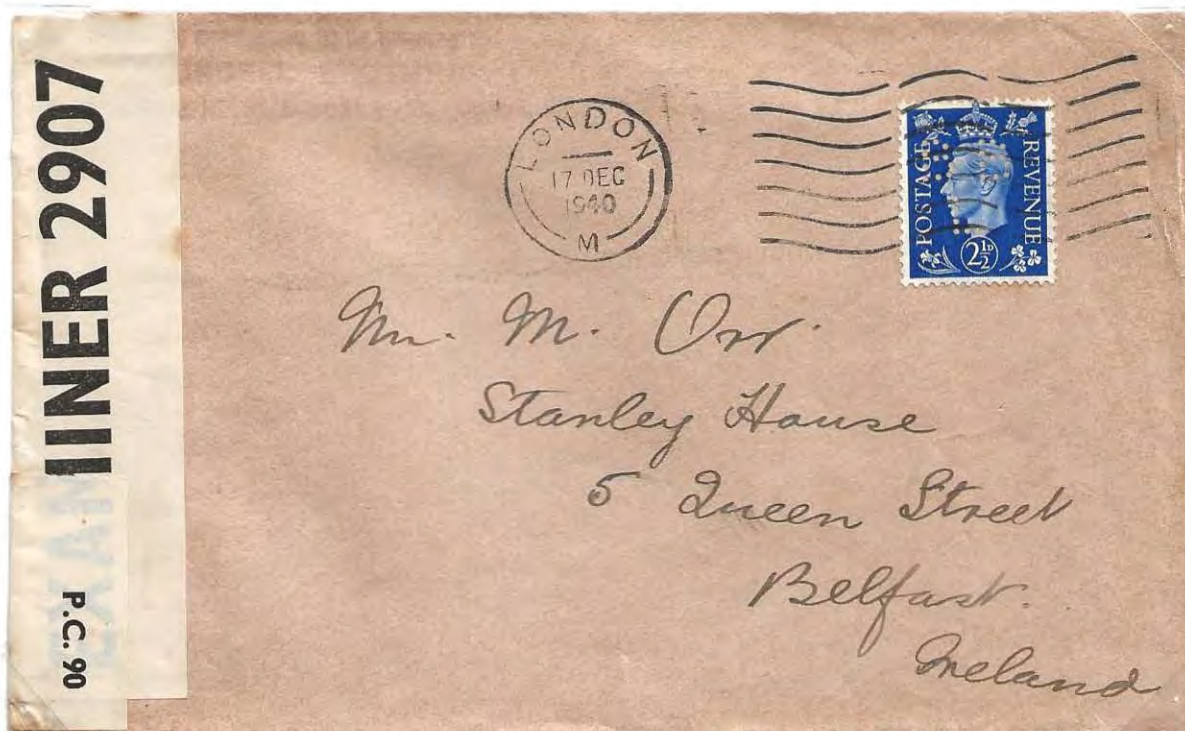 IINER 2907
P.C. 90
EXAM
LONDON
17 DEC
1940
M
POSTAGE
REVENUE
2½D
Mr. M. Orr.
Stanley House
5 Queen Street
Belfast.
Ireland